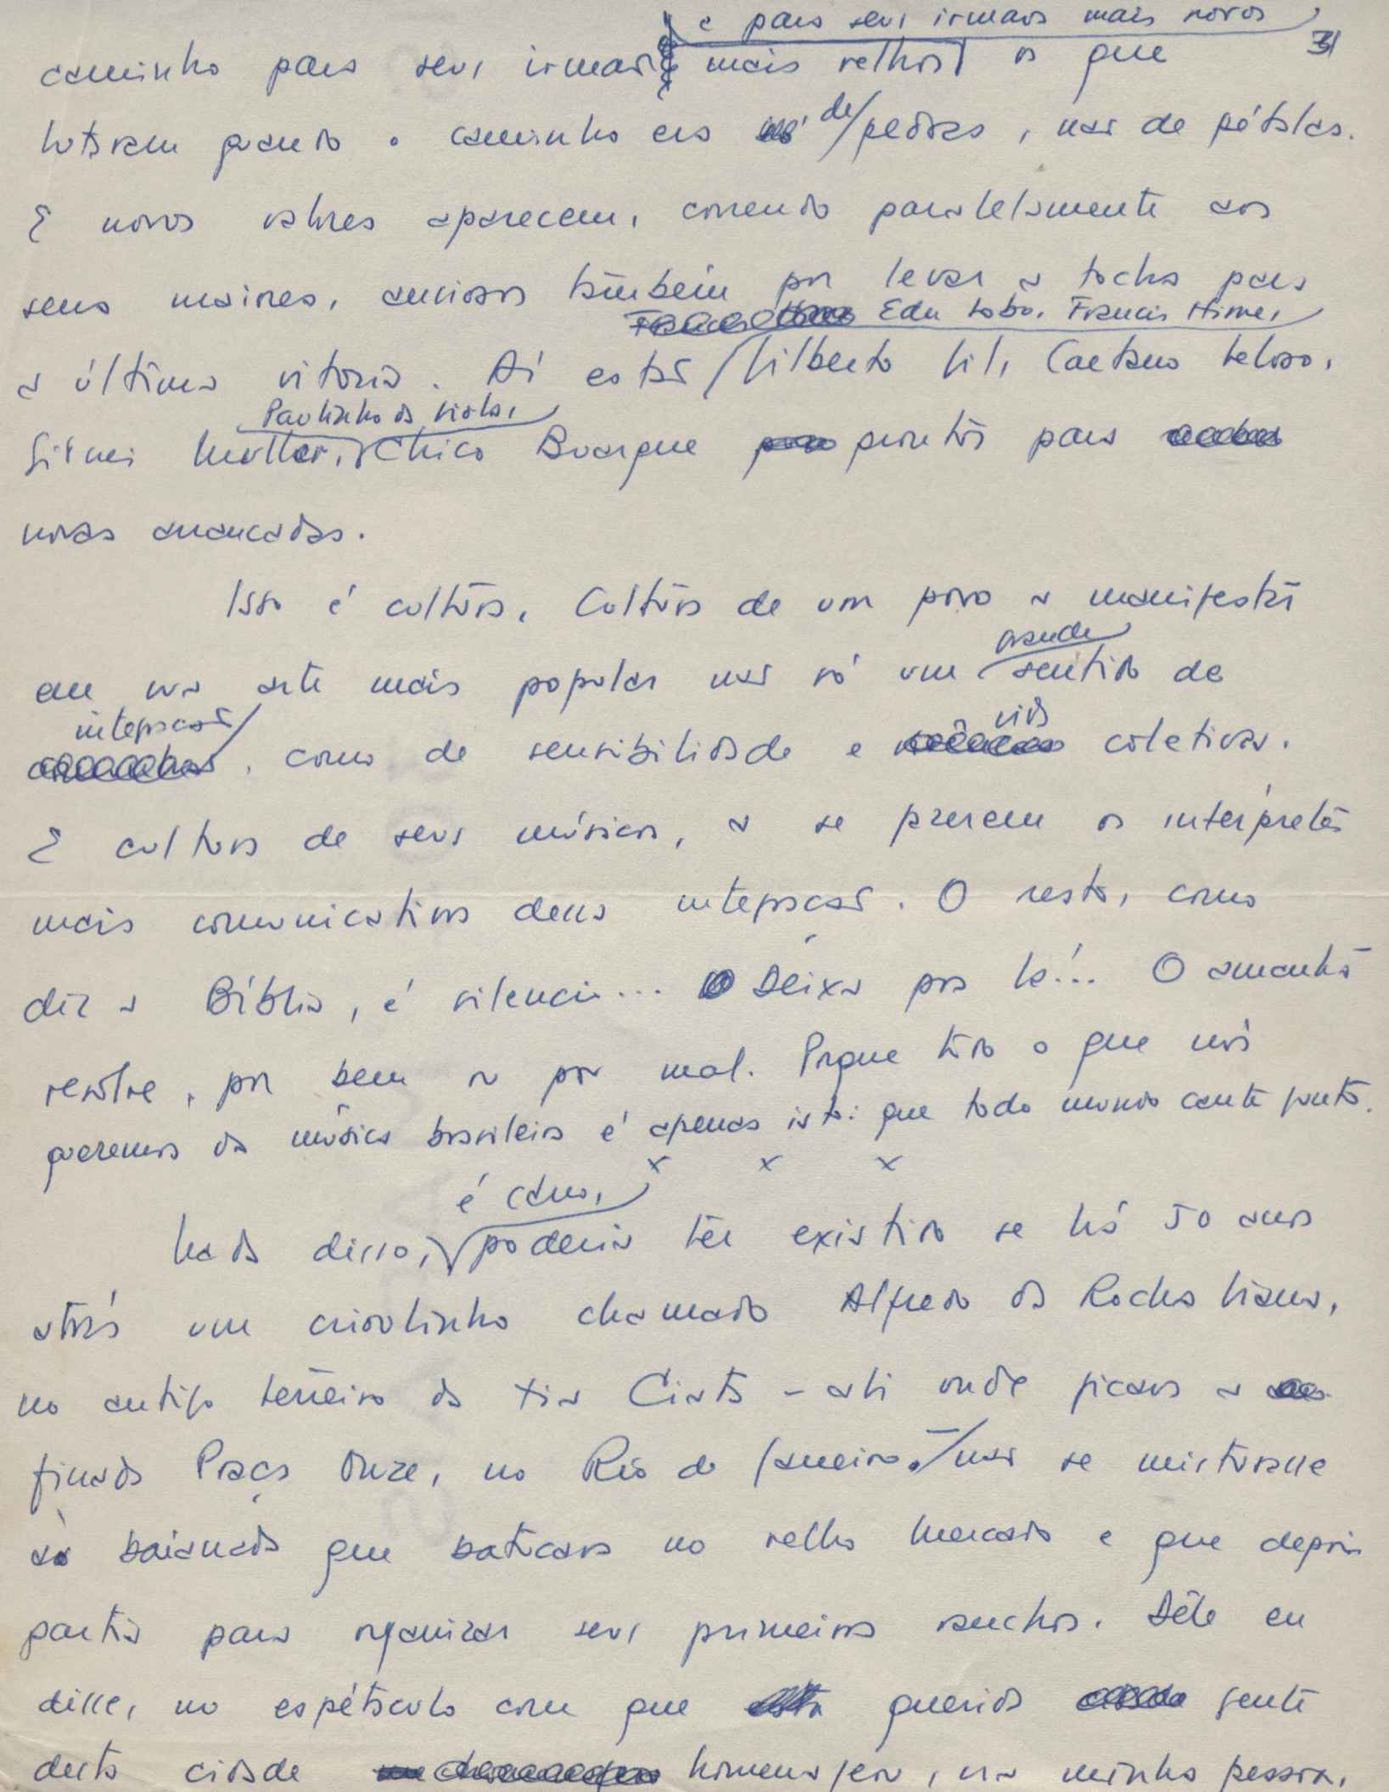 e para seus irmãos mais novos
31
caminho para seus irmãos mais velhos os que
lutaram quando o caminho era de pedras, não de pétalas.
E novos valores aparecem, correndo paralelamente aos
seus maiores, ansiosos também por levar a tocha para
Edu Lobo, Francis Hime,
a última vitória. Aí estão Gilberto Gil, Caetano Veloso,
Paulinho da Viola,
Sidnei Muller, Chico Buarque prontos para
novas arrancadas.
Isso é cultura. Cultura de um povo a manifestar
grande
em sua arte mais popular não só um sentido de
integração vida
, como de sensibilidade e coletivas.
E cultura de seus músicos, a se fazerem os intérpretes
mais comunicativos dessa integração. O resto, como
diz a Bíblia, é silêncio... Deixa pra lá!.. O amanhã
resolve, por bem ou por mal. Porque tudo o que nós
queremos da música brasileira é apenas isto: que todo mundo cante junto.
x x x
é claro,
Nada disso, poderia ter existido se há 50 anos
atrás um crioulinho chamado Alfredo da Rocha Viana,
no antigo terreiro da tia Ciata – ali onde ficava a
finada Praça Onze, no Rio de Janeiro – não se misturasse
à baianada que batucava no velho Mercado e que depois
partia para organizar seus primeiros ranchos. Dêle eu
disse, no espetáculo com que querida gente
desta cidade homenajeou, na minha pessoa,